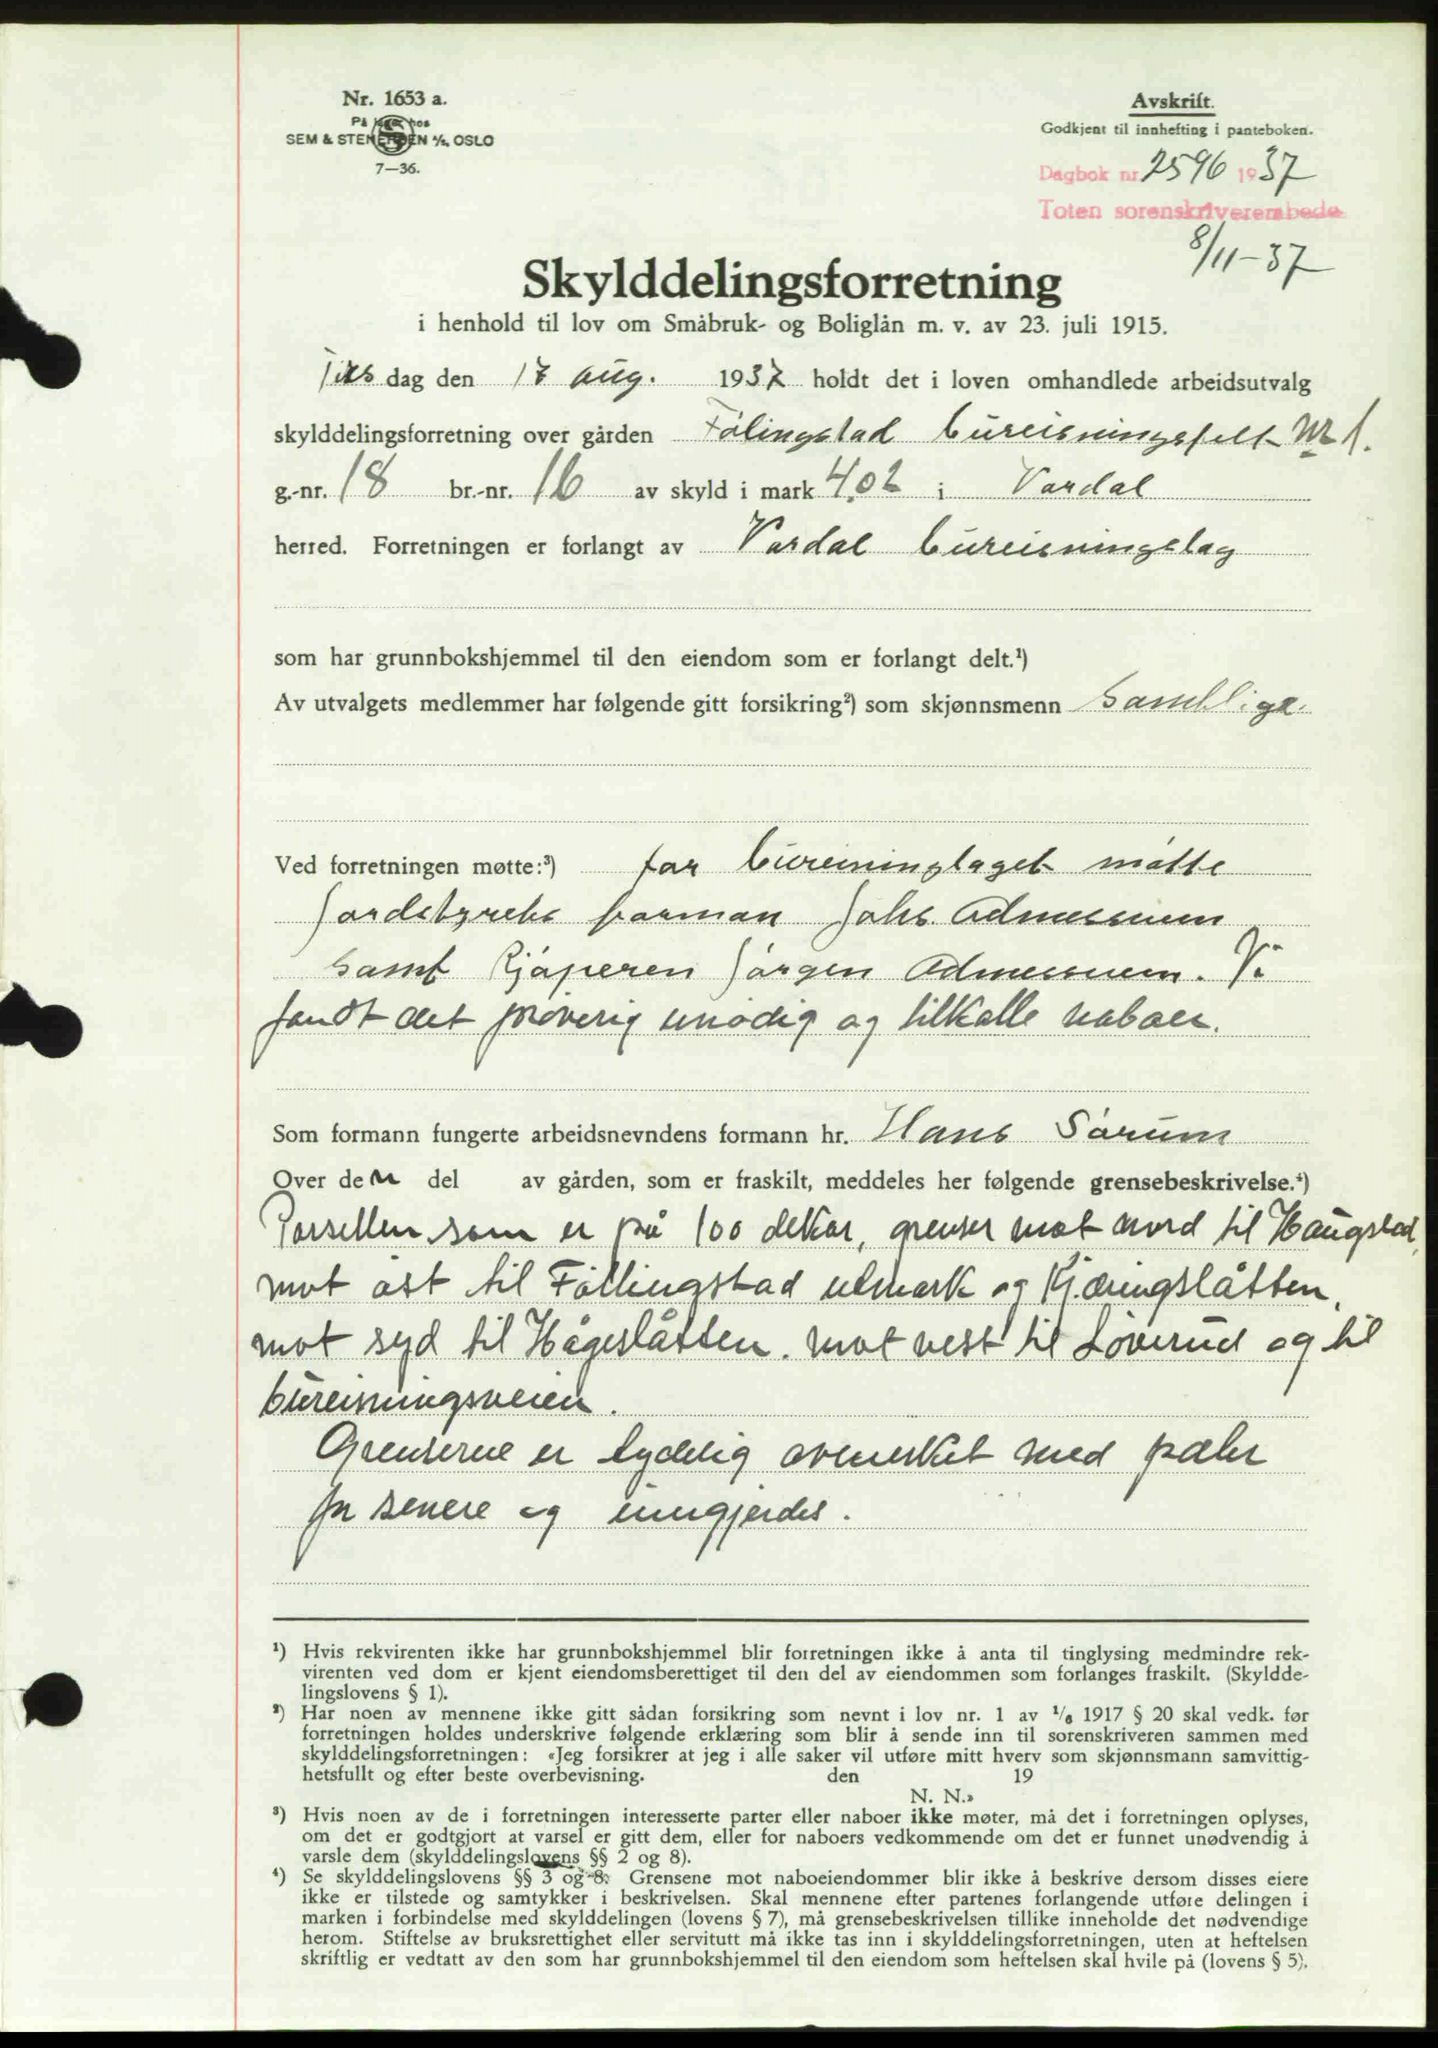 Nr. 1653 a.
På lager hos
SEM & STENERSEN A/S, OSLO
7—36.
Avskrift.
Godkjent til innhefting i panteboken.
Dagbok nr. 2596 1937
Toten sorenskriverembede
8/11-37
Skylddelingsforretning
i henhold til lov om Småbruk- og Boliglån m. v. av 23. juli 1915.
Tirsdag den 17 aug. 1937 holdt det i loven omhandlede arbeidsutvalg
skylddelingsforretning over gården Fólingstad bureisningsfelt Nr 1.
g.-nr. 18 br.-nr. 16 av skyld i mark 4,02 i Vardal
herred. Forretningen er forlangt av Vardal bureisningslag
som har grunnbokshjemmel til den eiendom som er forlangt delt.¹)
Av utvalgets medlemmer har følgende gitt forsikring²) som skjønnsmenn Samtlige.
Ved forretningen møtte:³) for bureisninglaget møtte
Jordstyrets forman Johs. Ødmessuem
samt kjøperen Jørgen Ødmessuem. Vi
fandt det prøverig unødig og tilkalle naboer.
Som formann fungerte arbeidsnevndens formann hr. Hans Sørum
Over den del av gården, som er fraskilt, meddeles her følgende grensebeskrivelse.⁴)
Parsellen som er på 100 dekar, grenser mot nord til Haugstad,
mot øst til Føllingstad utmark og Kjæringslåtten,
mot syd til Hågeslåtten. mot vest til Løverud og til
bureisningsveien.
Grenserne er tydelig avmerket med pæler
for senere og inngjerdes.
¹) Hvis rekvirenten ikke har grunnbokshjemmel blir forretningen ikke å anta til tinglysing medmindre rek-
virenten ved dom er kjent eiendomsberettiget til den del av eiendommen som forlanges fraskilt. (Skyldde-
lingslovens § 1).
²) Har noen av mennene ikke gitt sådan forsikring som nevnt i lov nr. 1 av 1/6 1917 § 20 skal vedk. før
forretningen holdes underskrive følgende erklæring som blir å sende inn til sorenskriveren sammen med
skylddelingsforretningen: «Jeg forsikrer at jeg i alle saker vil utføre mitt hverv som skjønnsmann samvittig-
hetsfullt og efter beste overbevisning. den 19
N. N.»
³) Hvis noen av de i forretningen interesserte parter eller naboer ikke møter, må det i forretningen oplyses,
om det er godtgjort at varsel er gitt dem, eller for naboers vedkommende om det er funnet unødvendig å
varsle dem (skylddelingslovens §§ 2 og 8).
⁴) Se skylddelingslovens §§ 3 og 8. Grensene mot naboeiendommer blir ikke å beskrive dersom disses eiere
ikke er tilstede og samtykker i beskrivelsen. Skal mennene efter partenes forlangende utføre delingen i
marken i forbindelse med skylddelingen (lovens § 7), må grensebeskrivelsen tillike inneholde det nødvendige
herom. Stiftelse av bruksrettighet eller servitutt må ikke tas inn i skylddelingsforretningen, uten at heftelsen
skriftlig er vedtatt av den som har grunnbokshjemmel til den eiendom som heftelsen skal hvile på (lovens § 5).